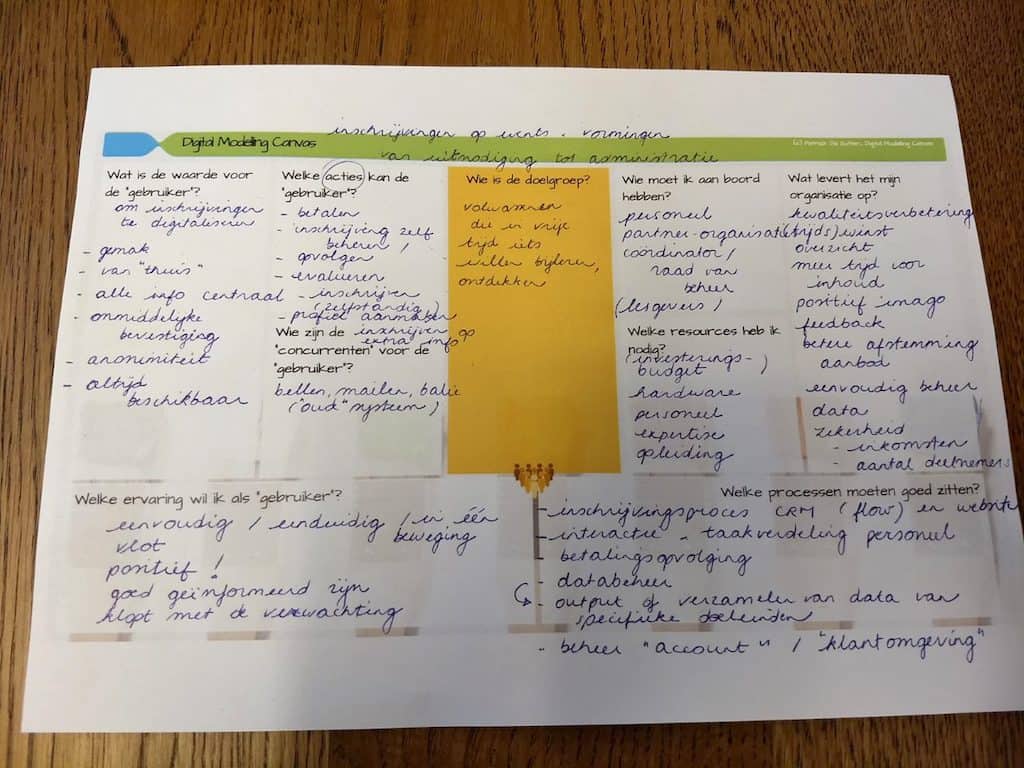 inschrijvingen op events - vormingen
Digital Modelling Canvas
van uitnodiging tot administratie
(c) Patrick De Sutter, Digital Modelling Canvas
Wat is de waarde voor
de "gebruiker"?
om inschrijvingen
te digitaliseren
- gemak
- van "thuis"
- alle info centraal
- onmiddelijke
bevestiging
- anonimiteit
- altijd
beschikbaar
Welke acties kan de
"gebruiker"?
- betalen
- inschrijving zelf
beheren /
- opvolgen
- evalueren
- inschrijven
(zelfstandig)
- profiel aanmaken
inschrijven op
extra info
Wie zijn de
"concurrenten" voor de
"gebruiker"?
bellen, mailen, balie
("oud" systeem)
Wie is de doelgroep?
volwassenen
die in vrije
tijd iets
willen bijleren,
ontdekken
Wie moet ik aan boord
hebben?
personeel
partner-organisatie
coördinator /
raad van
beheer
(lesgevers)
Welke resources heb ik
nodig?
(investerings-)
budget
hardware
personeel
expertise
opleiding
Wat levert het mijn
organisatie op?
kwaliteitsverbetering
(tijds)winst
overzicht
meer tijd voor
inhoud
positief imago
feedback
betere afstemming
aanbod
eenvoudig beheer
data
zekerheid
- inkomsten
- aantal deelnemers
Welke ervaring wil ik als "gebruiker"?
eenvoudig / eenduidig / in één
beweging
vlot
positief !
goed geïnformeerd zijn
klopt met de verwachting
Welke processen moeten goed zitten?
- inschrijvingsproces CRM (flow) en website
- interactie - taakverdeling personeel
- betalingsopvolging
- databeheer
- output of verzamelen van data van
specifieke doeleinden
- beheer "account" / "klantomgeving"